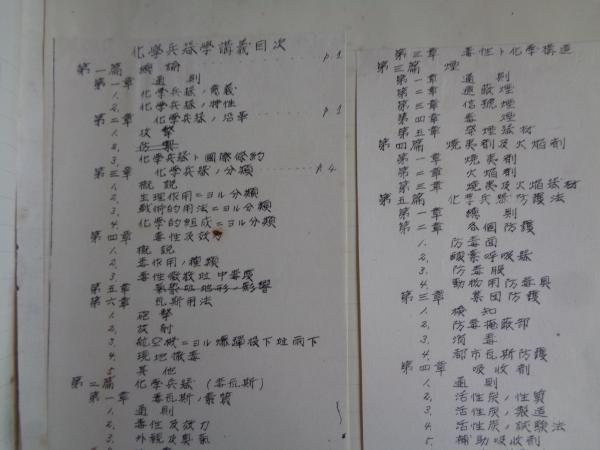 化學兵器學講義目次
第一篇 總論 p.1
第一章 通則
1. 化学兵器ノ意義
2. 化学兵器ノ特性
第二章 化学兵器ノ沿革 p.1
1. 攻撃
2. 防禦
3. 化学兵器ト國際條約
第三章 化学兵器ノ分類 p.4
1. 概説
2. 生理作用ニヨル分類
3. 戰術的用法ニヨル分類
4. 化学的組成ニヨル分類
第四章 毒性及效力
1. 概説
2. 毒作用ノ種類
3. 毒性徴数竝中毒度
第五章 氣象竝地形ノ影響
第六章 瓦斯用法
1. 砲撃
2. 放射
3. 航空機ニヨル爆彈投下竝雨下
4. 現地撒毒
5. 其他
第二篇 化学兵器 (毒瓦斯)
第一章 毒瓦斯ノ素質
1. 通則
2. 毒性及效力
3. 外観及臭氣
第三章 毒性ト化学構造
第三篇 煙
第一章 通則
第二章 遮蔽煙
第三章 信號煙
第四章 毒煙
第五章 發煙器材
第四篇 燒夷剤及火焔剤
第一章 燒夷剤
第二章 火焔剤
第三章 燒夷及火焔器材
第五篇 化学兵器防護法
第一章 總則
第二章 各個防護
1. 防毒面
2. 酸素呼吸器
3. 防毒服
4. 動物用防毒具
第三章 集団防護
1. 検知
2. 防毒掩蔽部
3. 消毒
4. 都市瓦斯防護
第四章 吸收剤
1. 通則
2. 活性炭ノ性質
3. 活性炭ノ製造
4. 活性炭ノ試験法
5. 補助吸收剤